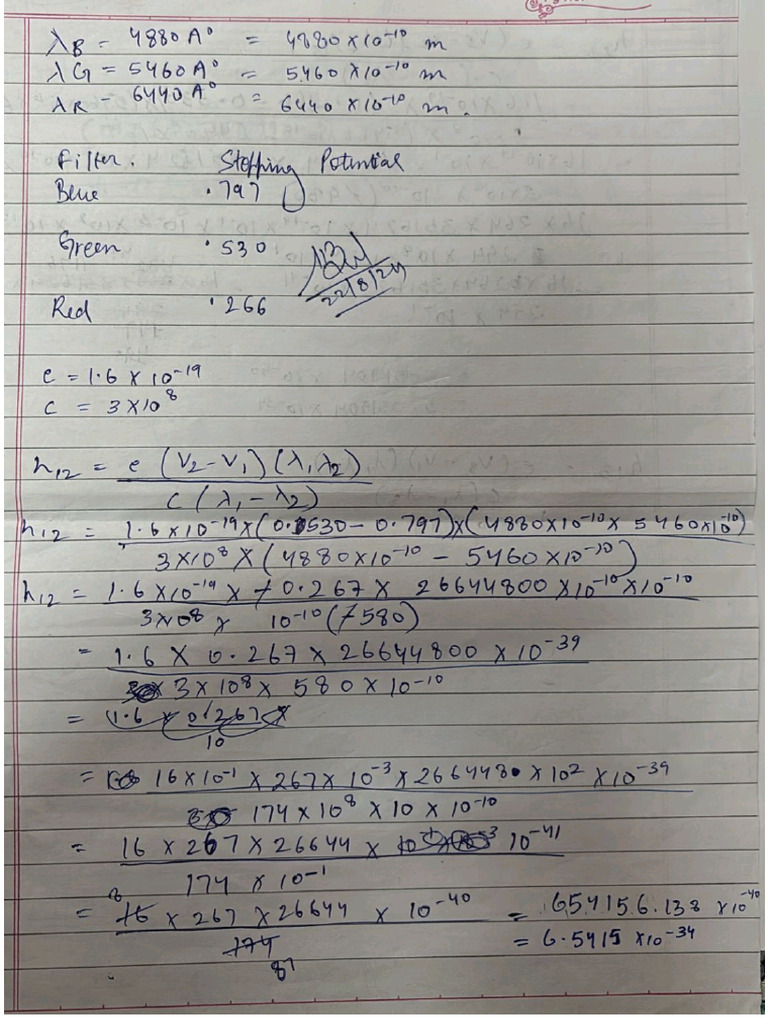 λB = 4880 A° = 4880 × 10⁻¹⁰ m
λG = 5460 A° = 5460 × 10⁻¹⁰ m
λR = 6440 A° = 6440 × 10⁻¹⁰ m.
Filter. Stopping Potential
Blue .797
Green .530
22/8/24
Red .266
e = 1.6 × 10⁻¹⁹
c = 3 × 10⁸
h₁₂ = e (V₂ - V₁) (λ₁λ₂)
c (λ₁ - λ₂)
h₁₂ = 1.6 × 10⁻¹⁹ × (0.530 - 0.797) × (4880 × 10⁻¹⁰ × 5460 × 10⁻¹⁰)
3 × 10⁸ × (4880 × 10⁻¹⁰ - 5460 × 10⁻¹⁰)
h₁₂ = 1.6 × 10⁻¹⁹ × -0.267 × 26644800 × 10⁻¹⁰ × 10⁻¹⁰
3 × 10⁸ × 10⁻¹⁰ (-580)
= 1.6 × 0.267 × 26644800 × 10⁻³⁹
3 × 10⁸ × 580 × 10⁻¹⁰
= (1.6 × 0.267 ×
10
= 16 × 10⁻¹ × 267 × 10⁻³ × 2664480 × 10² × 10⁻³⁹
174 × 10⁸ × 10 × 10⁻¹⁰
= 16 × 267 × 26644 × 10⁻⁴¹
174 × 10⁻¹
= 8 16 × 267 × 26644 × 10⁻⁴⁰ = 654156.138 × 10⁻⁴⁰
174 = 6.5415 × 10⁻³⁴
87